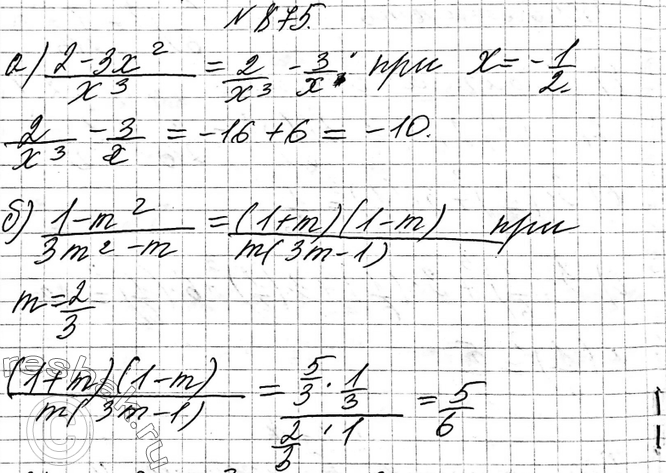 № 875.
а) (2-3x²)/x³ = 2/x³ - 3/x, при x = -1/2.
2/x³ - 3/x = -16 + 6 = -10.
б) (1-m²)/(3m²-m) = (1+m)(1-m)/(m(3m-1)) при
m = 2/3
(1+m)(1-m)/(m(3m-1)) = (5/3 · 1/3)/(2/3 · 1) = 5/6